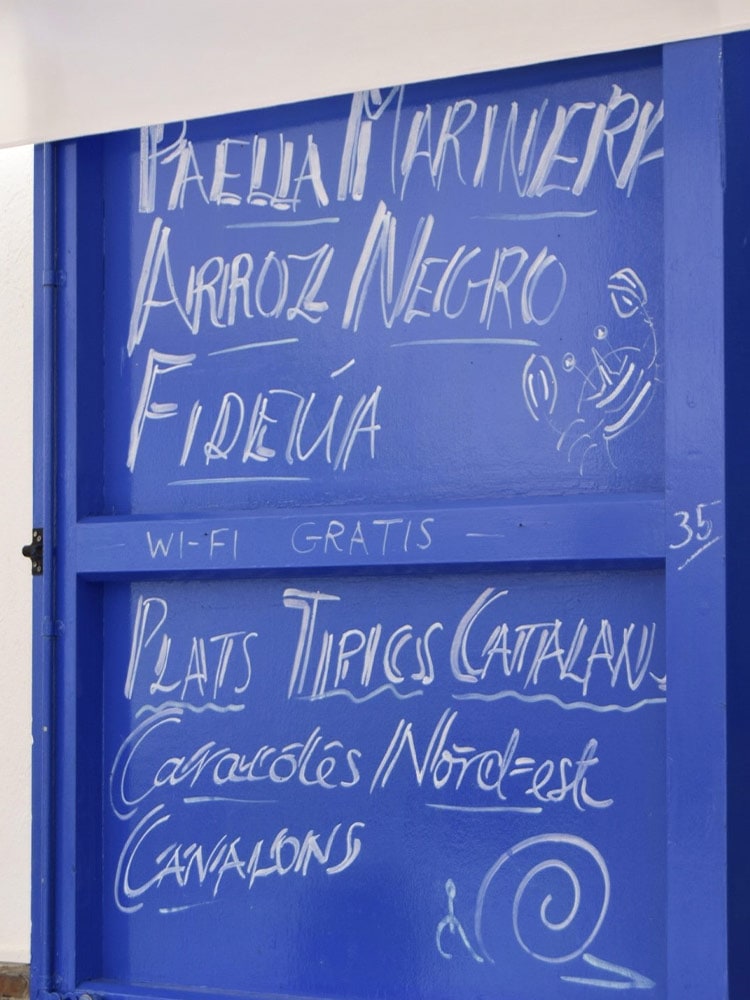 PAELLA MARINERA
ARROZ NEGRO
FIDEÚA
WI-FI GRATIS —
35
PLATS TIPICS CATALANS
Caracolés Nord-est
CANALONS